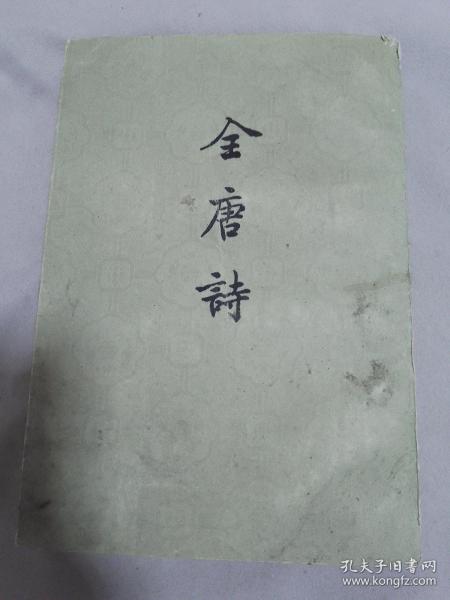 全唐詩
孔夫子旧书网
www.kongfz.com